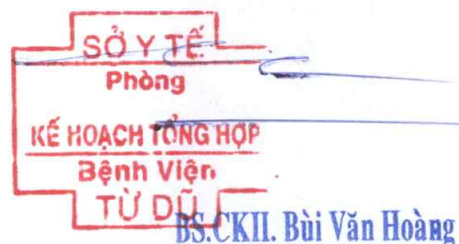 SỞ Y TẾ
Phòng
KẾ HOẠCH TỔNG HỢP
Bệnh Viện
TỪ DŨ
BS.CKII. Bùi Văn Hoàng